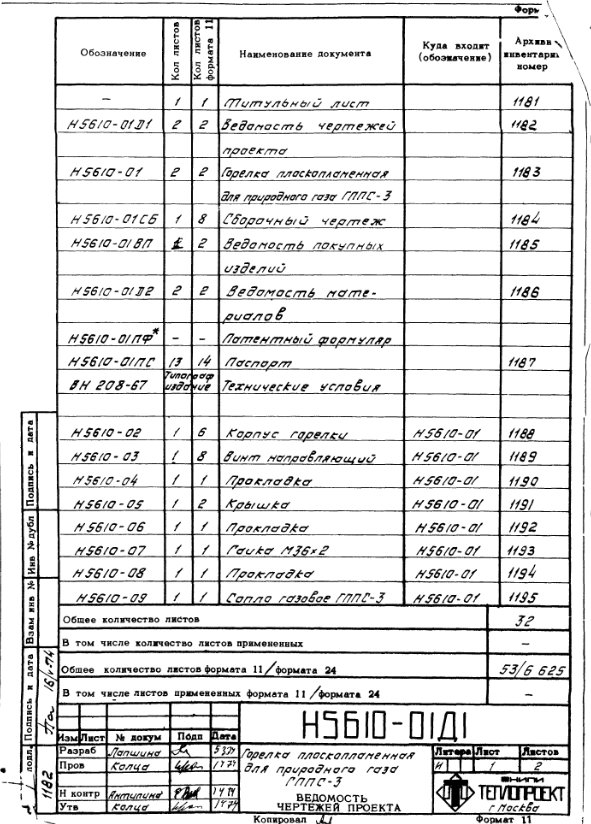 Обозначение | Кол листов | Кол листов формата 11 | Наименование документа | Куда входит (обозначение) | Архивн инвентарн номер
– 1 1 Титульный лист 1181
Н5610-01Д1 2 2 Ведомость чертежей 1182
проекта
Н5610-01 2 2 Горелка плоскопламенная 1183
для природного газа ГППС-3
Н5610-01СБ 1 8 Сборочный чертеж 1184
Н5610-01ВП 2 Ведомость покупных 1185
изделий
Н5610-01Д2 2 2 Ведомость мате- 1186
риалов
Н5610-01ПФ* – – Патентный формуляр
Н5610-01ПС 13 14 Паспорт 1187
ВН 208-67 Типограф издание Технические условия
Н5610-02 1 6 Корпус горелки Н5610-01 1188
Н5610-03 1 8 Винт направляющий Н5610-01 1189
Н5610-04 1 1 Прокладка Н5610-01 1190
Н5610-05 1 2 Крышка Н5610-01 1191
Н5610-06 1 1 Прокладка Н5610-01 1192
Н5610-07 1 1 Гайка М36×2 Н5610-01 1193
Н5610-08 1 1 Прокладка Н5610-01 1194
Н5610-09 1 1 Сопло газовое ГППС-3 Н5610-01 1195
Общее количество листов 32
В том числе количество листов примененных –
Общее количество листов формата 11/формата 24 53/6 625
В том числе листов примененных формата 11/формата 24 –
Подпись и дата
Инв № дубл
Взам инв №
Подпись и дата
подл
1182
Н5610-01Д1
Изм Лист № докум Подп Дата
Разраб Лапшина
Пров Колца
Н контр Антипина
Утв Колца
Горелка плоскопламенная
для природного газа
ГППС-3
ВЕДОМОСТЬ
ЧЕРТЕЖЕЙ ПРОЕКТА
Литера Лист Листов
И 1 2
ВНИПИ
ТЕПЛОПРОЕКТ
г Москва
Копировал Формат 11